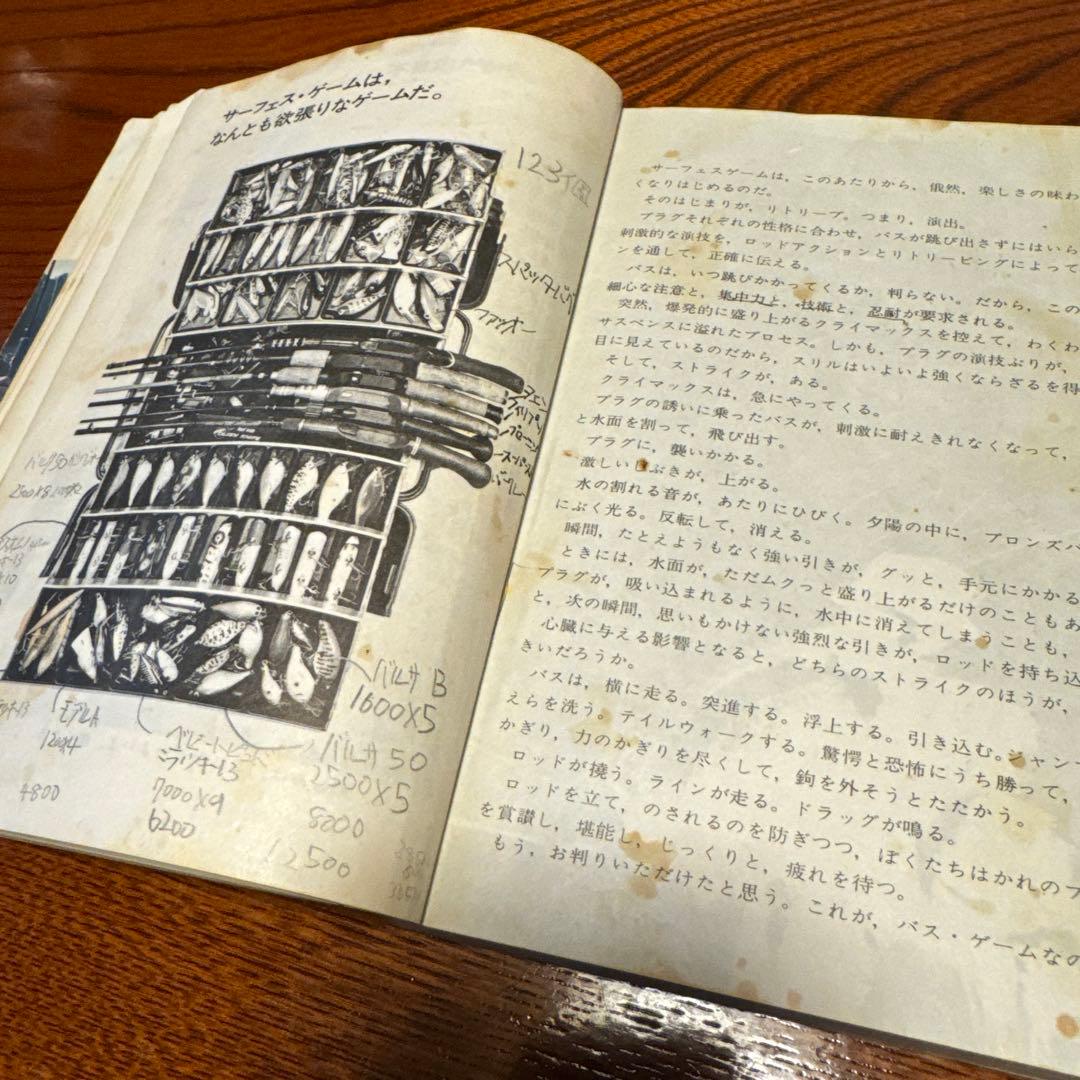 サーフェス・ゲームは，
なんとも欲張りなゲームだ。
123個
ファッオー
バルサB
1600×5
バルサ50
2500×5
8200
12500
モデルA
1200×4
4800
7000×9
6200
サーフェスゲームは，このあたりから，俄然，楽しさの味わ
くなりはじめるのだ。
そのはじまりが，リトリーブ。つまり，演出。
プラグそれぞれの性格に合わせ，バスが跳び出さずにはいら
刺激的な演技を，ロッドアクションとリトリービングによって
ンを通して，正確に伝える。
バスは，いつ跳びかかってくるか，判らない。だから，この
細心な注意と，集中力と，技術と，忍耐が要求される。
突然，爆発的に盛り上がるクライマックスを控えて，わくわ
サスペンスに溢れたプロセス。しかも，プラグの演技ぶりが，
目に見えているのだから，スリルはいよいよ強くならざるを得
そして，ストライクが，ある。
クライマックスは，急にやってくる。
プラグの誘いに乗ったバスが，刺激に耐えきれなくなって，
と水面を割って，飛び出す。
プラグに，襲いかかる。
激しい ぶきが，上がる。
水の割れる音が，あたりにひびく。夕陽の中に，ブロンズバ
にぶく光る。反転して，消える。
瞬間，たとえようもなく強い引きが，グッと，手元にかかる
ときには，水面が，ただムクっと盛り上がるだけのこともあ
プラグが，吸い込まれるように，水中に消えてしまうことも，
と，次の瞬間，思いもかけない強烈な引きが，ロッドを持ち込
心臓に与える影響となると，どちらのストライクのほうが，
きいだろうか。
バスは，横に走る。突進する。浮上する。引き込む。ジャン
えらを洗う。テイルウォークする。驚愕と恐怖にうち勝って，
かぎり，力のかぎりを尽くして，鉤を外そうとたたかう。
ロッドが撓う。ラインが走る。ドラッグが鳴る。
ロッドを立て，のされるのを防ぎつつ，ぼくたちはかれのフ
を賞讃し，堪能し，じっくりと，疲れを待つ。
もう，お判りいただけたと思う。これが，バス・ゲームなの